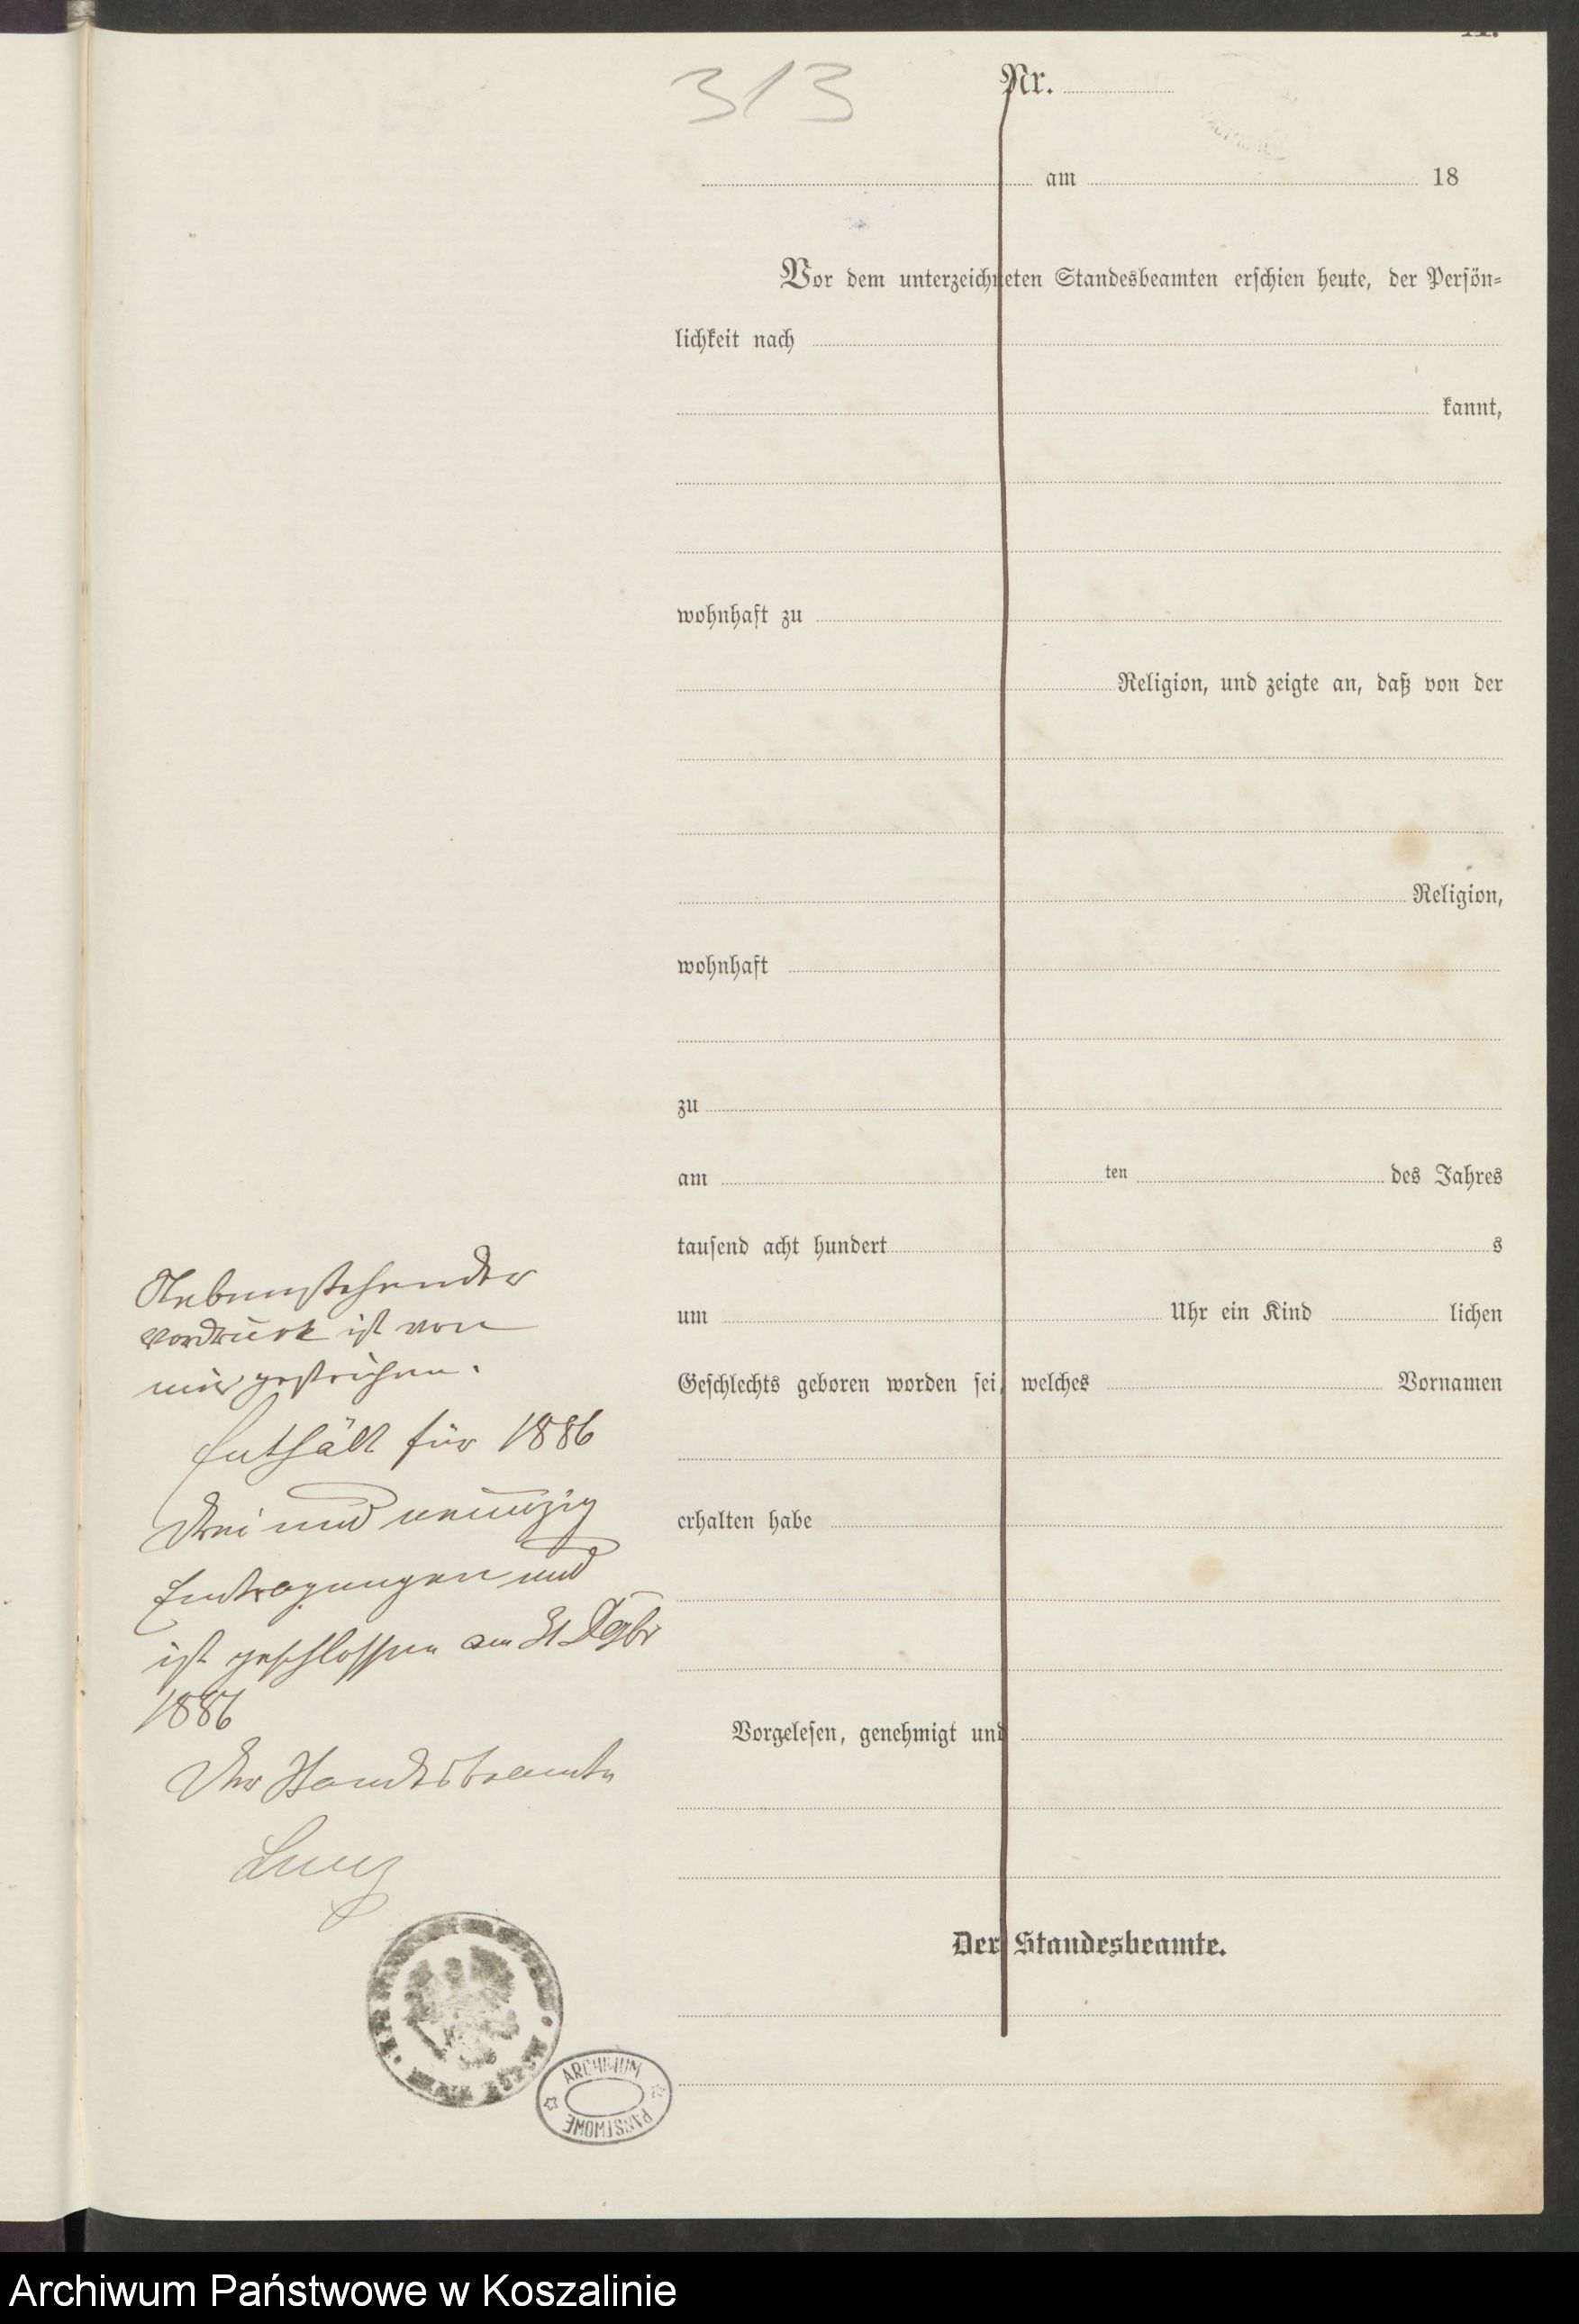 313
Nr.
am 18
Vor dem unterzeichneten Standesbeamten erschien heute, der Persön=
lichkeit nach
kannt,
wohnhaft zu
Religion, und zeigte an, daß von der
Religion,
wohnhaft
zu
am ten des Jahres
tausend acht hundert s
um Uhr ein Kind lichen
Geschlechts geboren worden sei, welches Vornamen
erhalten habe
Vorgelesen, genehmigt und
Der Standesbeamte.
Nebenstehender
Vordruck ist von
mir gestrichen.
Enthält für 1886
drei und neunzig
Eintragungen und
ist geschlossen am 31 Dezbr
1886
Der Standesbeamte
ARCHIWUM
PAŃSTWOWE
Archiwum Państwowe w Koszalinie